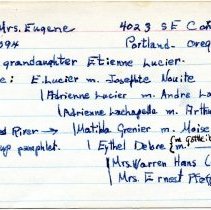 Mrs. Eugene 4023 SE Cor
094 Portland Oreg
grandaughter Etienne Lucier.
e: E. Lucier m. Josephte Nouite
Adrienne Lucier m. Andre La
Adrienne Lachapelle m. Arthu
Red River → Matilda Grenier m. Moise
pamphlet. Ethel Debre m. Gottlieb
m.
Mrs. Warren Hans (
Mrs. Ernest Pfef